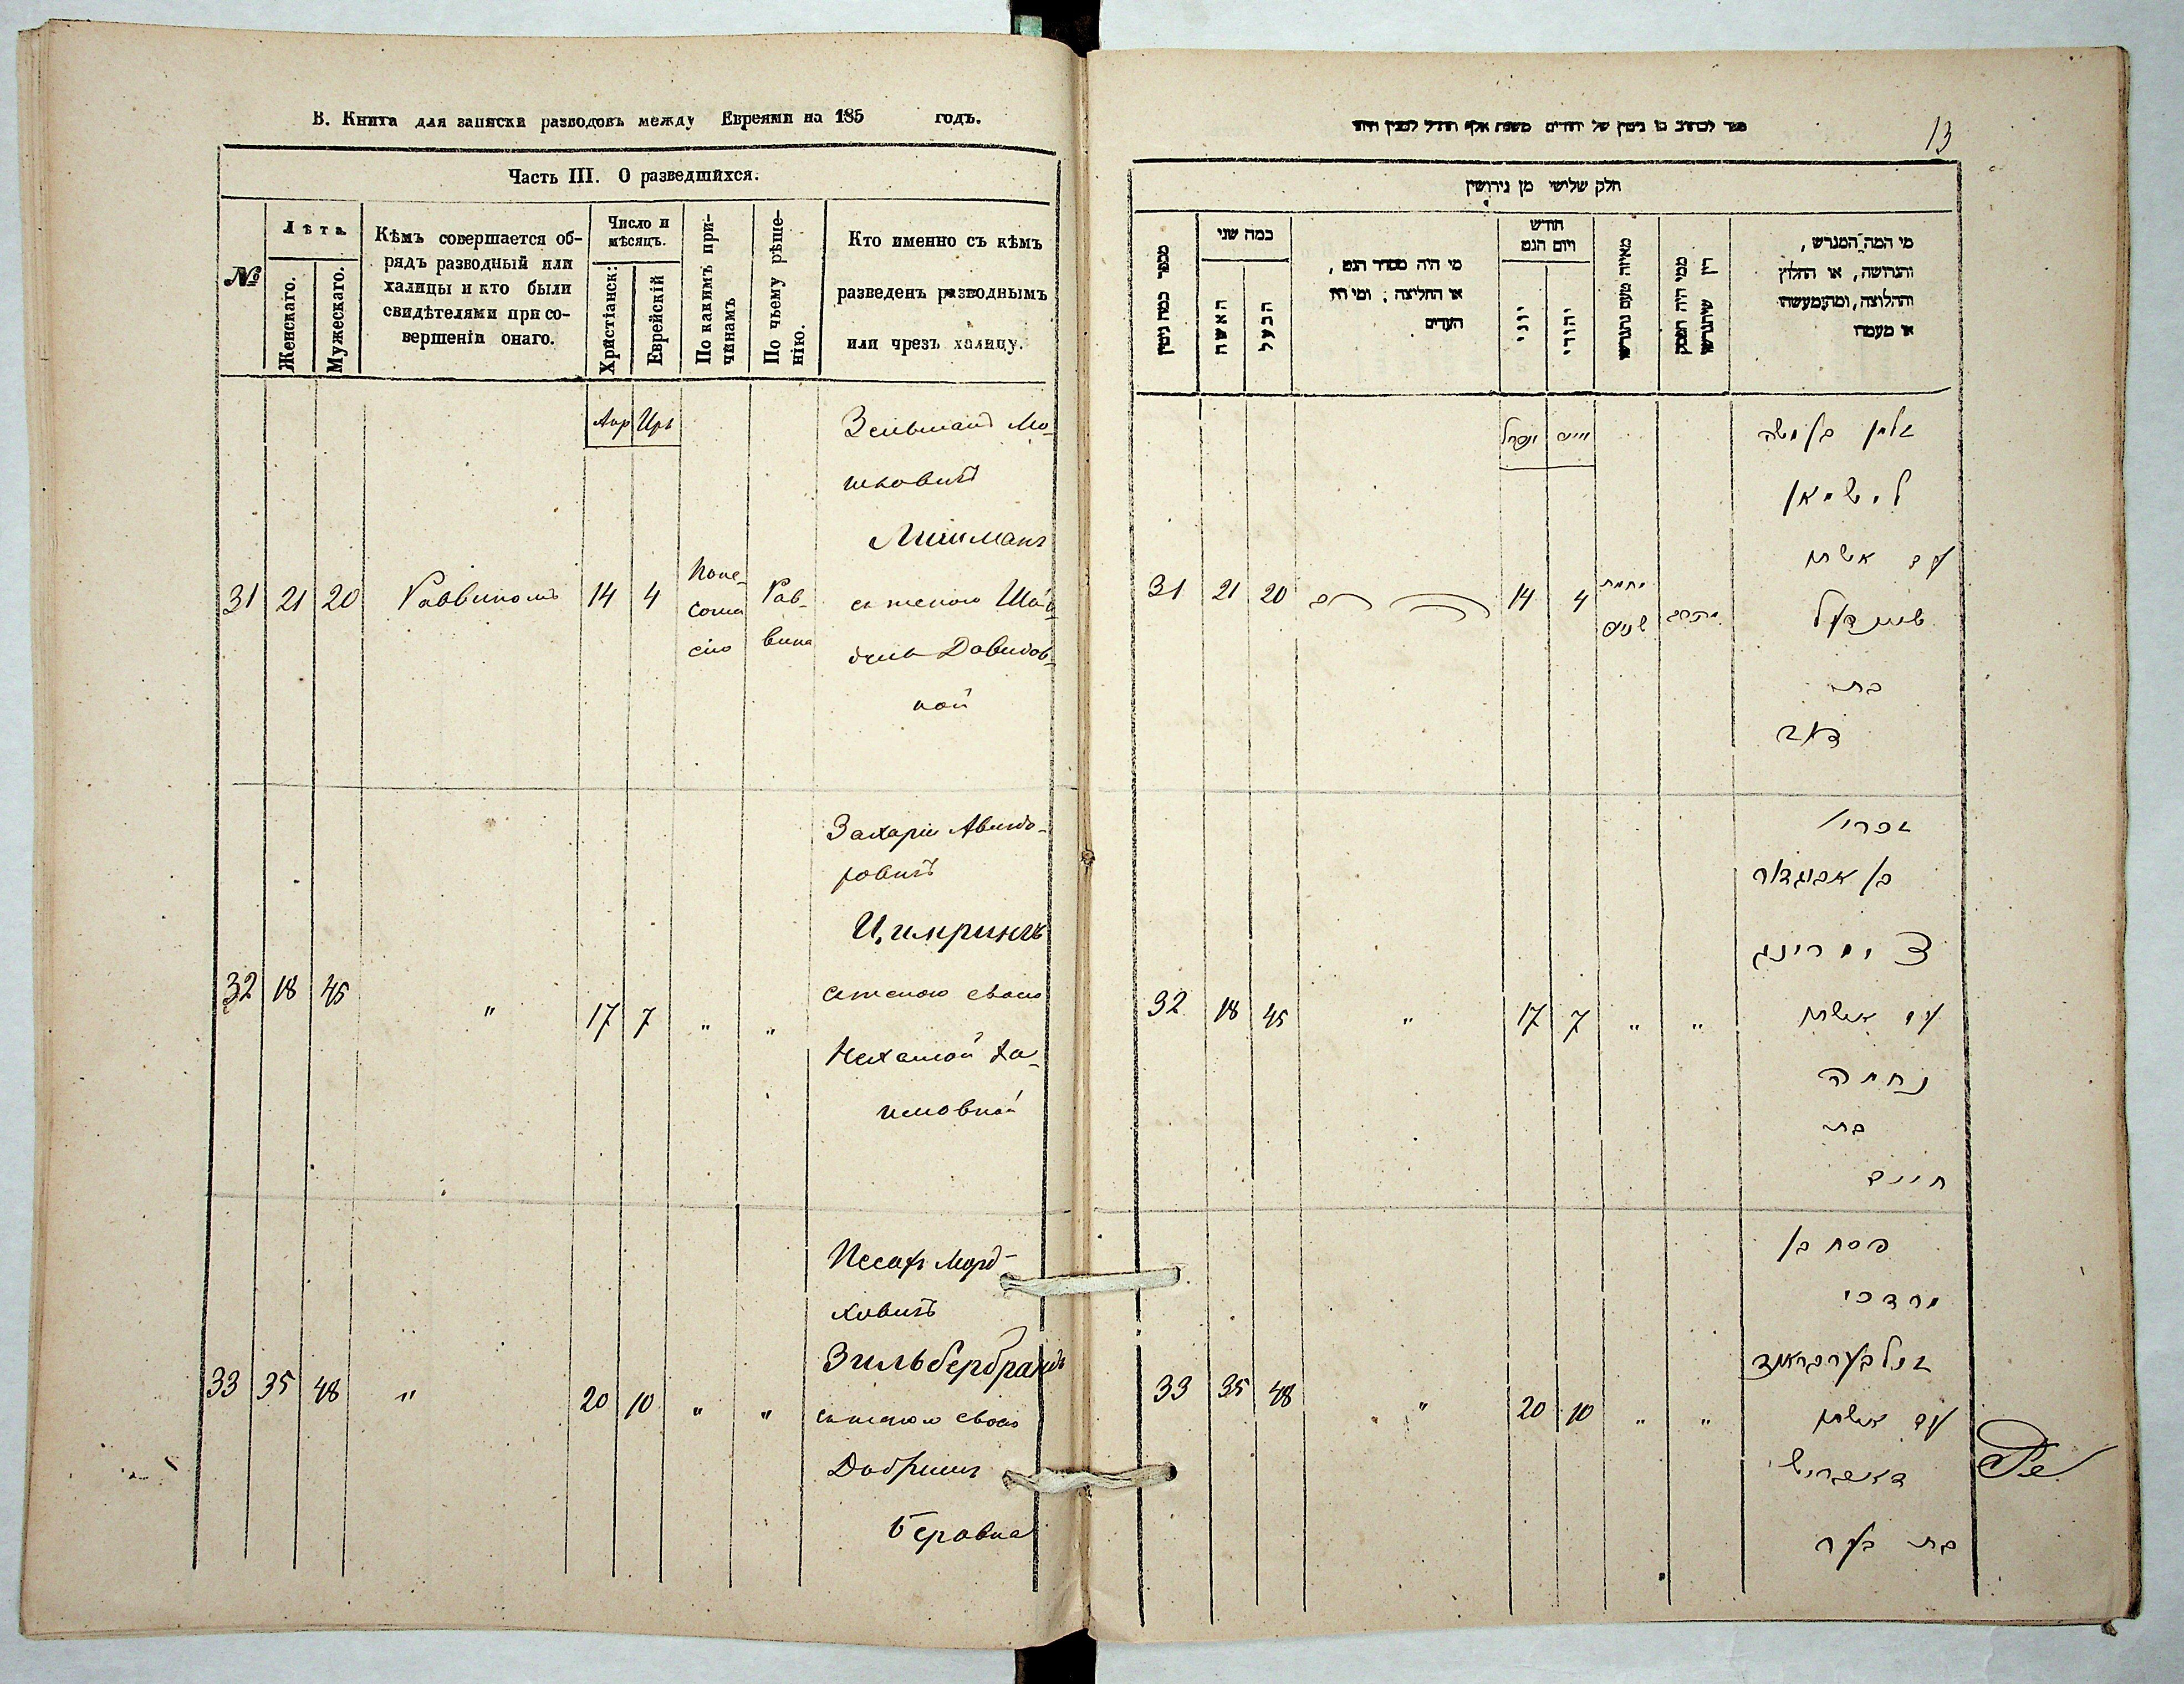 В. Книга для записки разводовъ между Евреями на 185 годъ.
Часть III. О разведшихся.
№
Лѣта
Женскаго.
Мужескаго.
Кѣмъ совершается об-
рядъ разводный или
халицы и кто были
свидѣтелями при со-
вершеніи онаго.
Число и
мѣсяцъ.
Христіанск:
Еврейскій
По какимъ при-
чинамъ
По чьему рѣше-
нію.
Кто именно съ кѣмъ
разведенъ разводнымъ
или чрезъ халицу.
Апр Иръ
31 21 20 Раввиномъ 14 4
Раввина
Зельманъ Мо-
шковичъ
Лишманъ
съ женою
Давидов-
ной
32 18 45 " 17 7 " "
Захарій Авигдо-
ровичъ
Цимрингъ
съ женою своею
Нехамой Ха-
имовной
33 35 48 " 20 10 " "
ПесахъМорд-
ховичъ
Зильбербрандъ
съ женою своею
Добришъ
Беровна
13
חלק שלישי מן גירושין
מספר כמה גיטין
כמה שני
האשה
הבעל
מי היה מסדר הגט,
או החליצה; ומי היו
העדים
חודש
ויום הגט
יוני
יהודי
מאיזה טעם נתגרשו
ממי היה הפסק
דין שיתגרשו
מי המה המגרש,
והגרושה, או החלוץ
והחלוצה, ומהנמעשהו
או מעמדו
אפריל אייר
31 21 20 14 4
זלמן בן משה
לישמאן
עם אשתו
בת
דוד
32 18 45 " 17 7 " "
זכרי'
בן אביגדור
צימרינג
עם אשתו
נחמה
בת
חיים
33 35 48 " 20 10 " "
פסח בן
מרדכי
זילבערבראנד
עם אשתו
דאברוש
בת בער